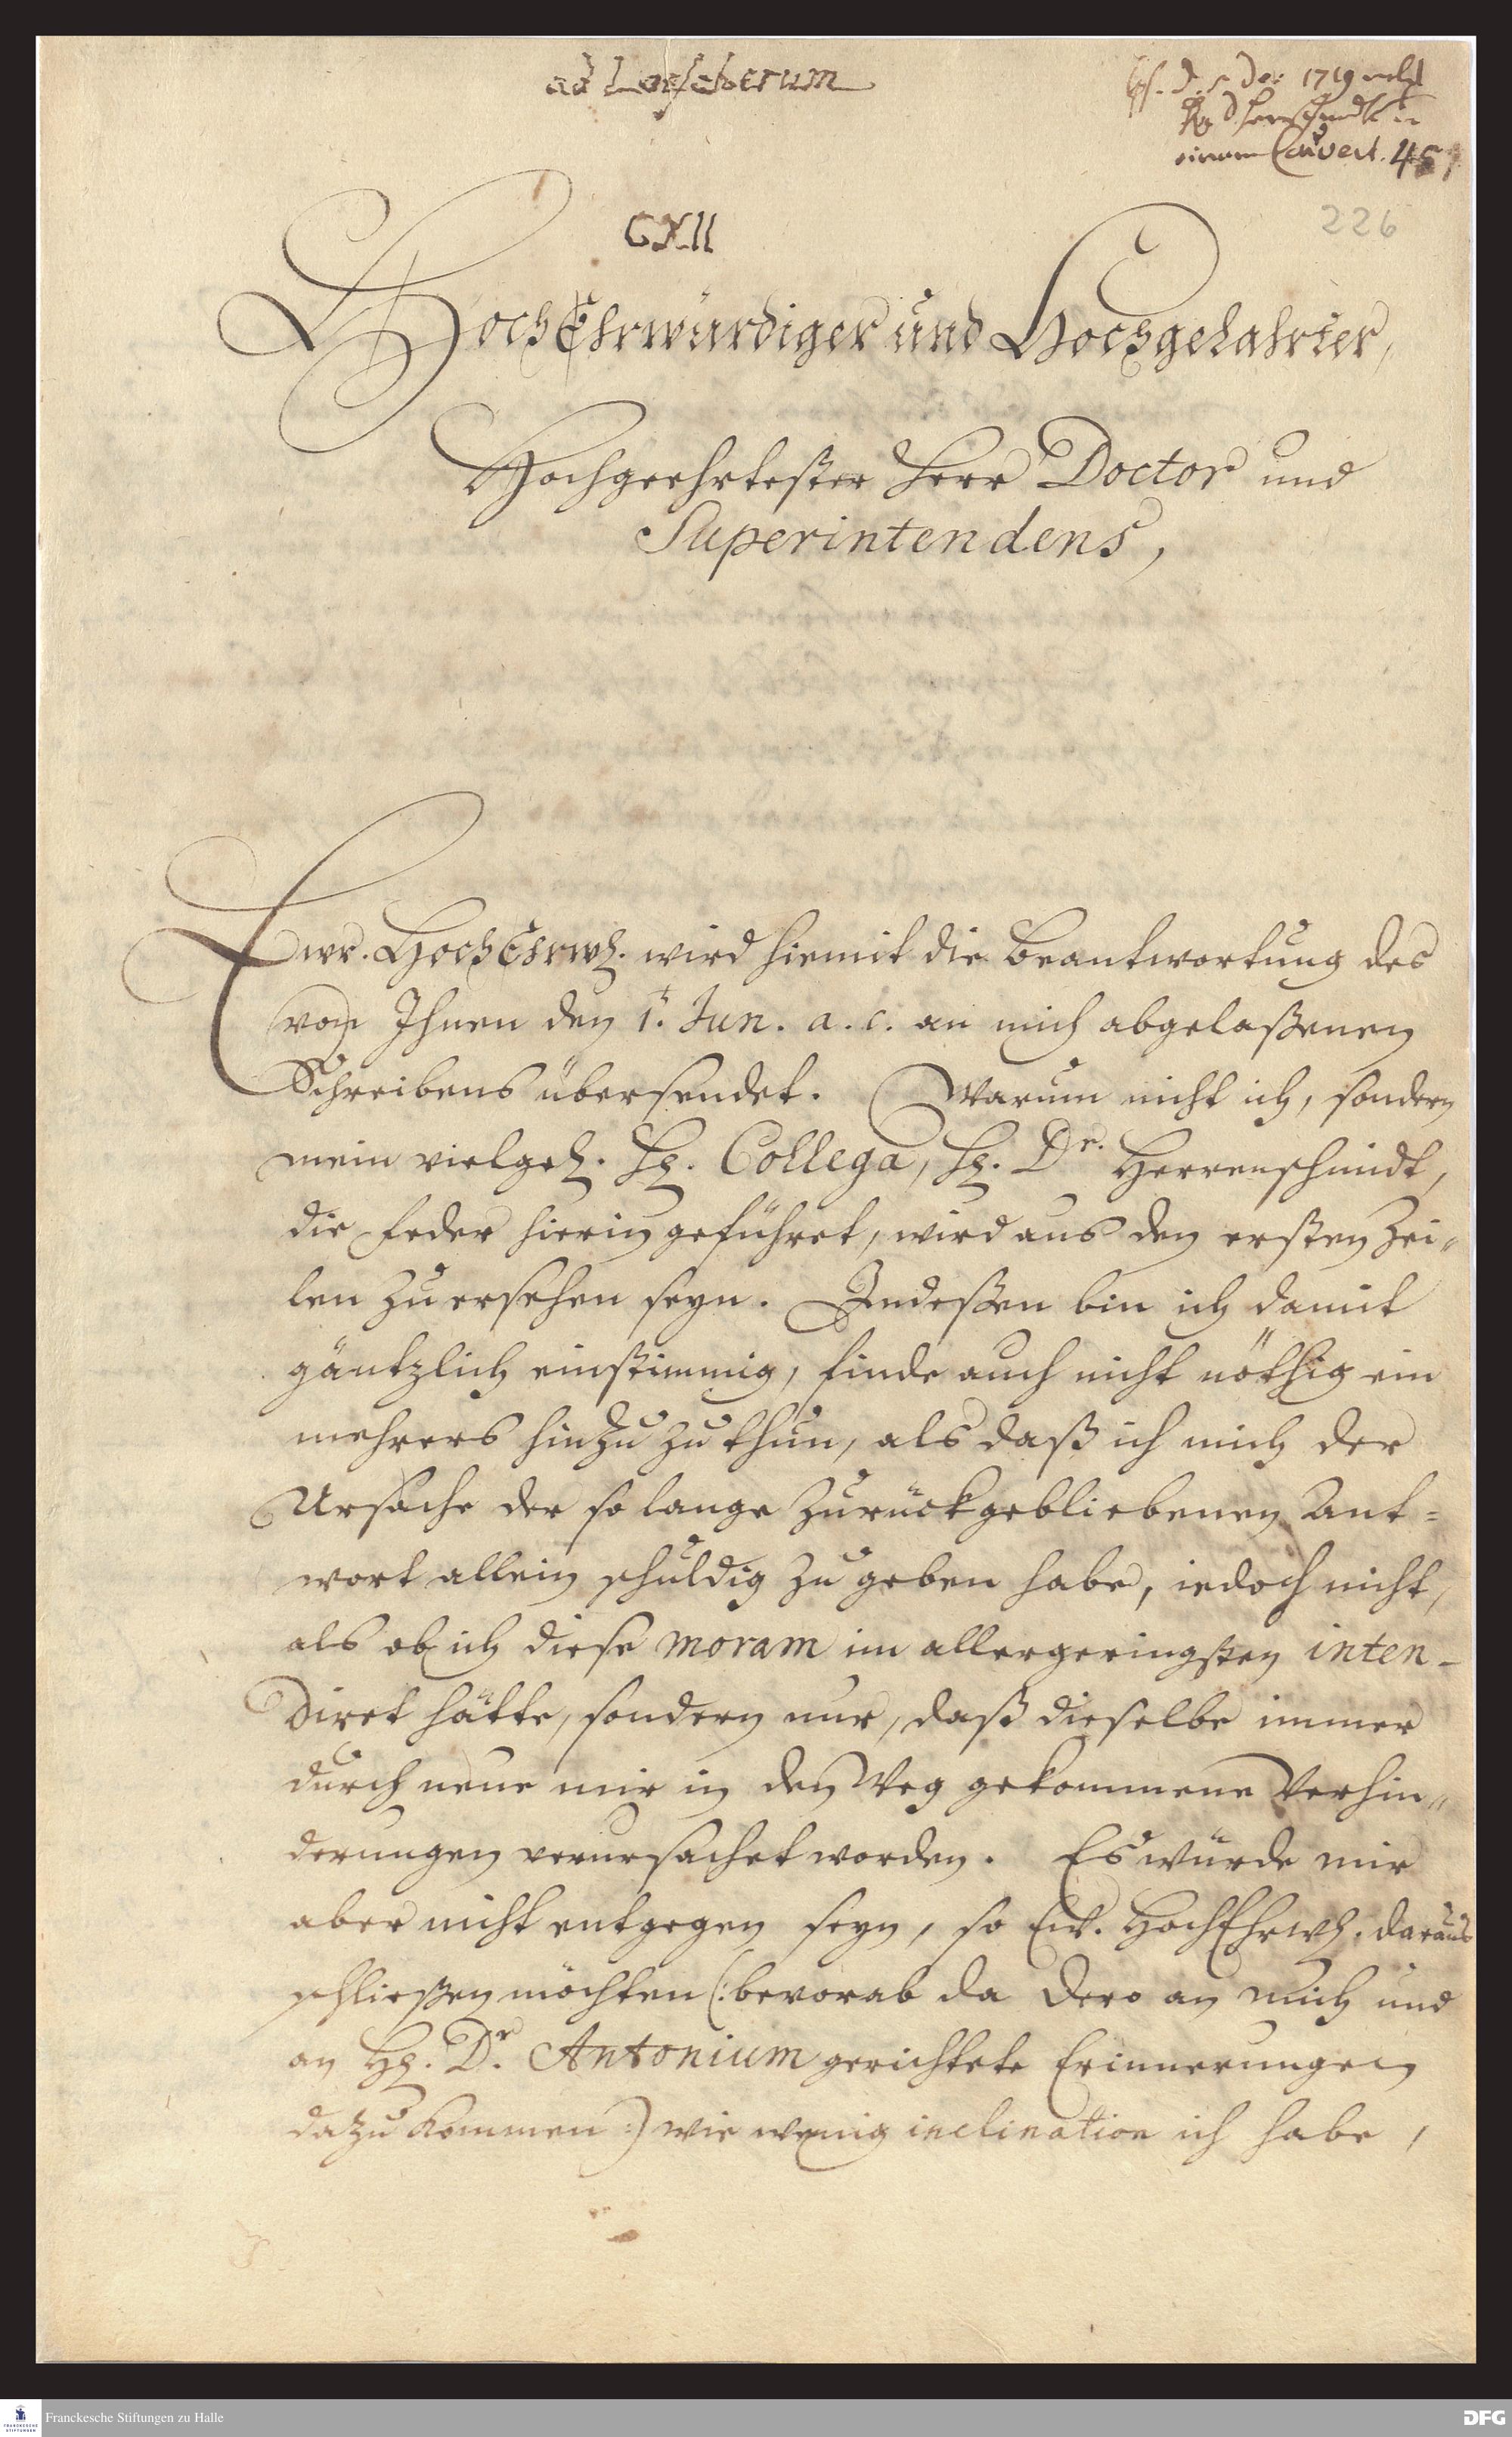 ad Loescherum
d. 5. Dec 1719
H D. Herrschmidt in
einem Couvert. 451
226
CXII
HochEhrwürdiger und Hochgelahrter,
Hochgeehrtester Herr Doctor und
Superintendens,
Ewr. HochEhrwh. wird hiemit die Beantwortung des
von Ihnen den 1t. Jun. a. c. an mich abgelaßenen
Schreibens übersendet. Warum nicht ich, sondern
mein vielgeh. Hh. Collega, Hh. Dr. Herrenschmidt,
die Feder hierin geführet, wird aus den ersten Zei„
len zu ersehen seyn. Indeßen bin ich damit
gäntzlich einstimmig, finde auch nicht nöthig ein
mehrers hinzu zu thun, als daß ich mich der
Ursache der so lange zurückgebliebenen Ant=
wort allein schuldig zu geben habe, iedoch nicht,
als ob ich diese moram im allergeringsten inten-
diret hätte, sondern nur, daß dieselbe immer
durch neue mir in den Weg gekommene Verhin„
derungen verursachet worden. Es würde mir
aber nicht entgegen seyn, so Ew. HochEhrwh. daraus
schließen möchten (: bevorab da Dero an mich und
an Hh. Dr. Antonium gerichtete Erinnerungen
dazu kommen :) wie wenig inclination ich habe,
Franckesche Stiftungen zu Halle
DFG